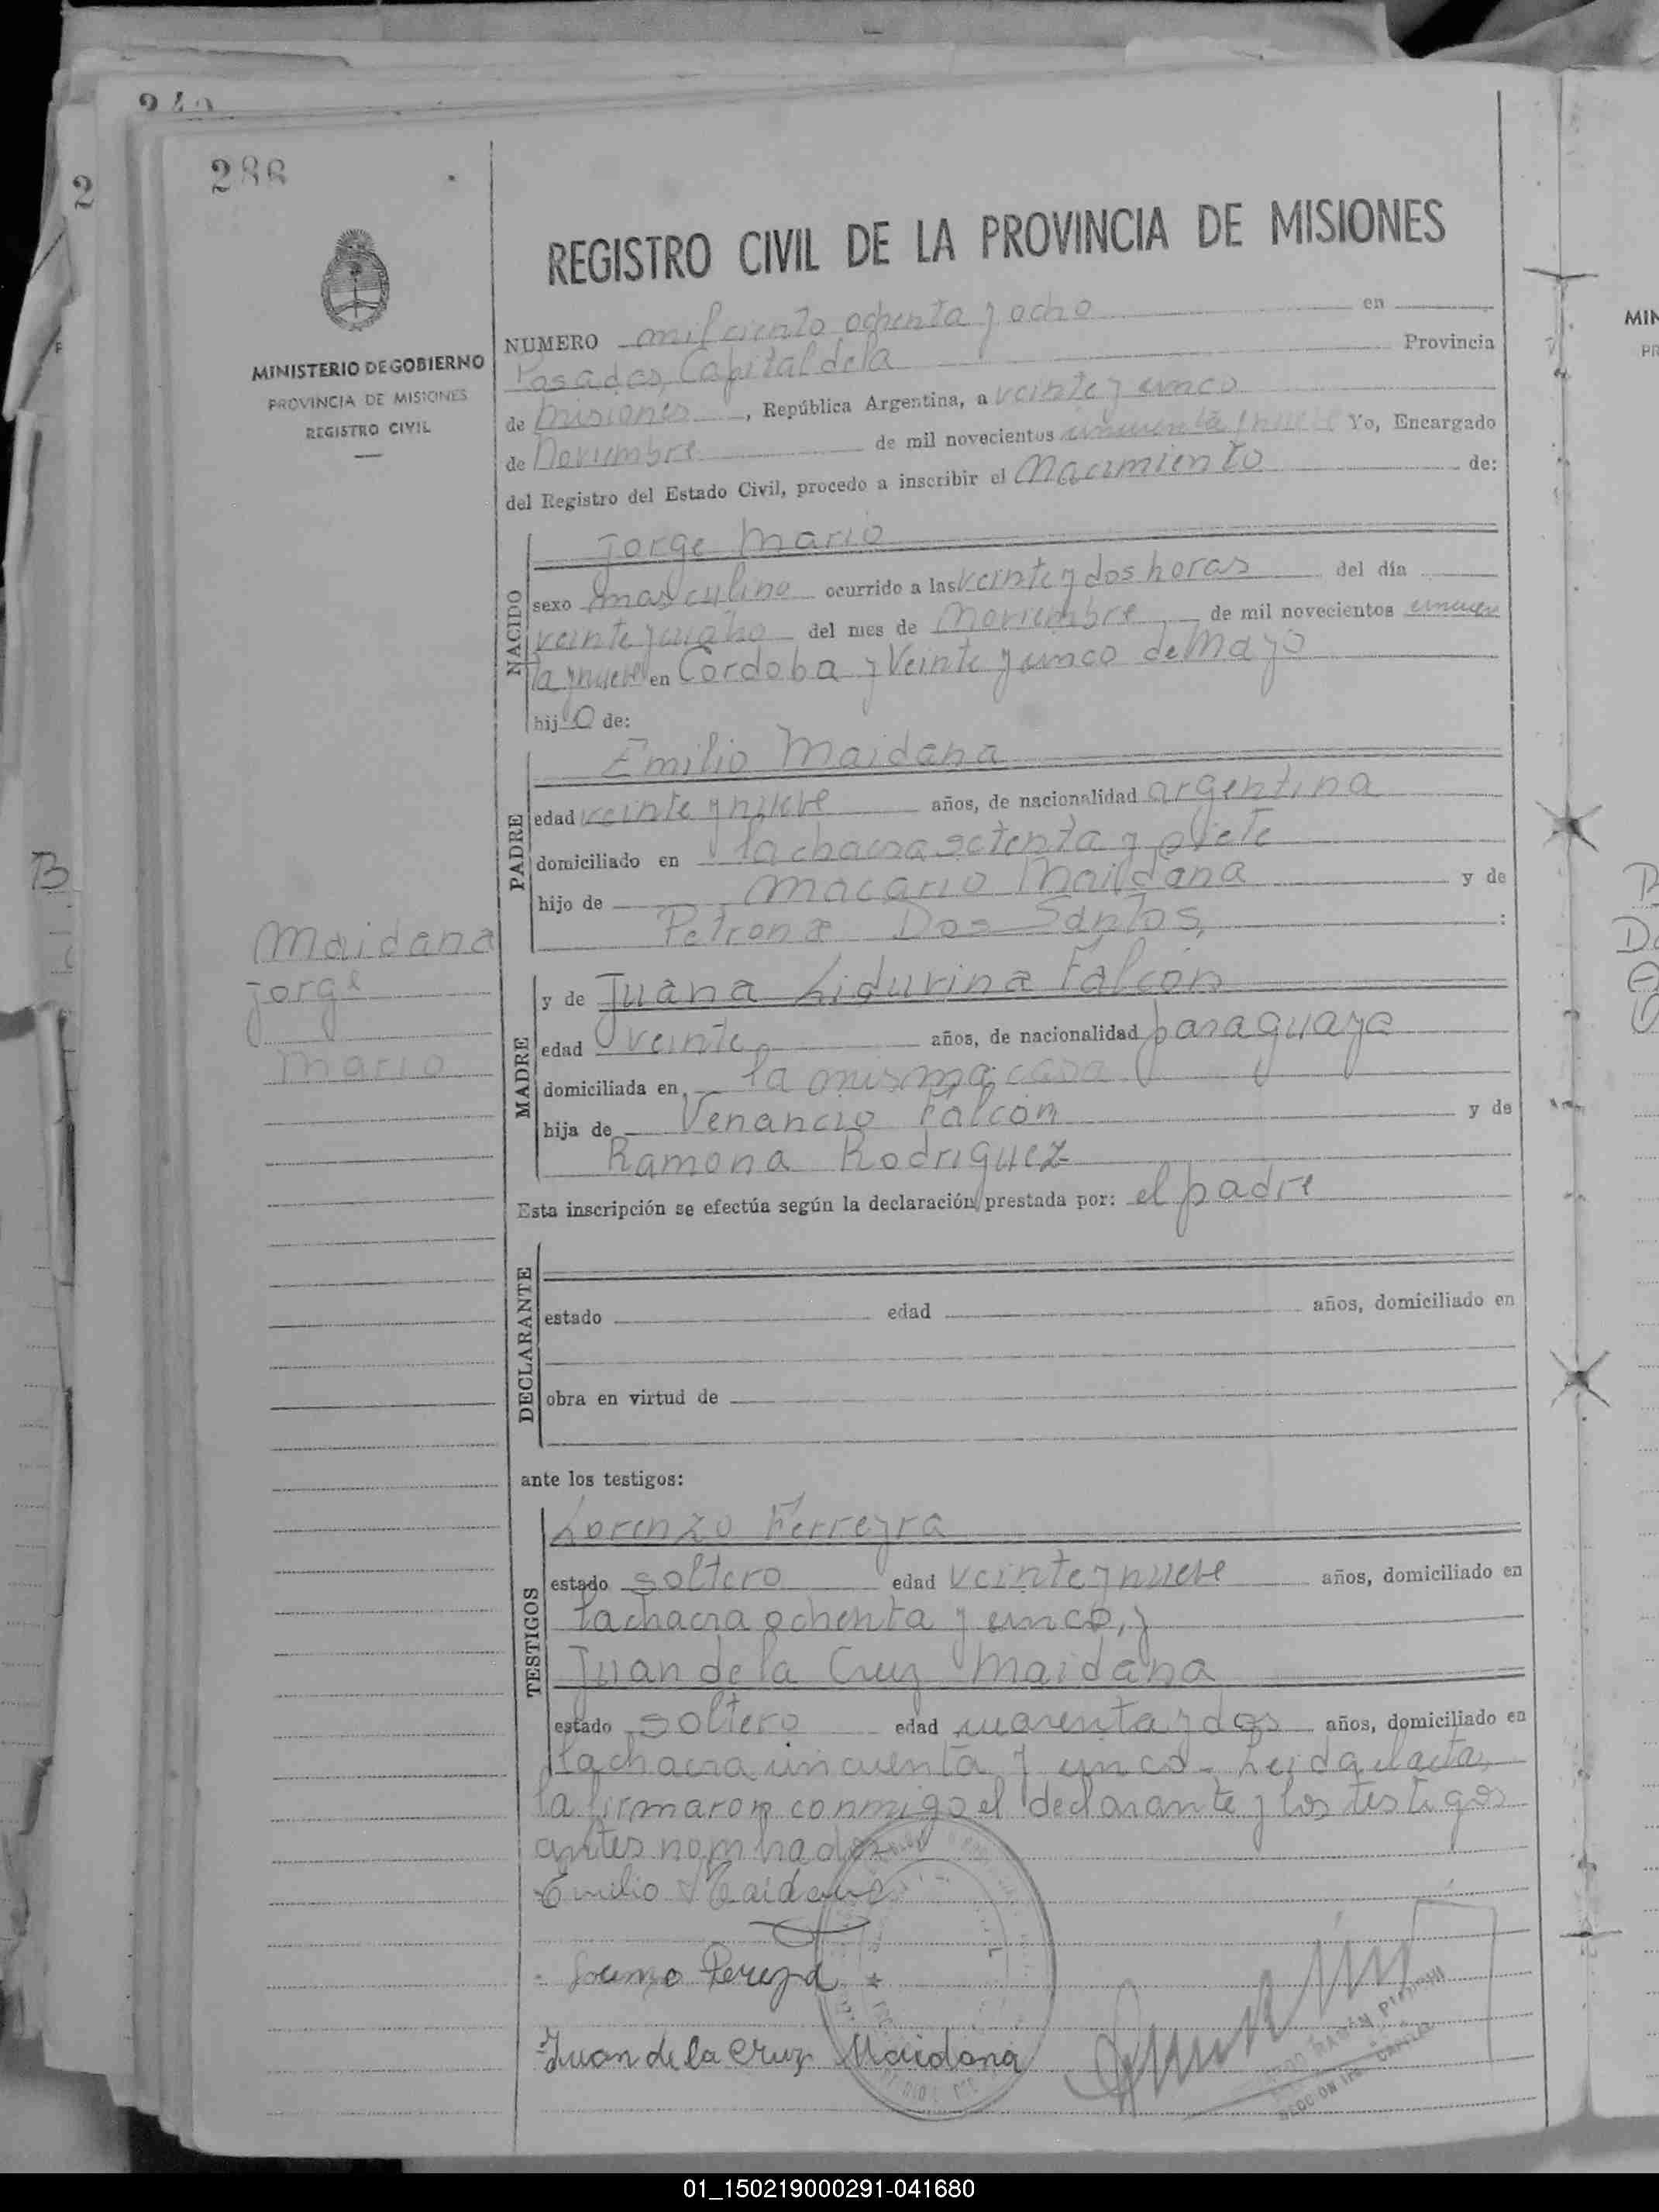 286
REGISTRO CIVIL DE LA PROVINCIA DE MISIONES
MINISTERIO DE GOBIERNO
PROVINCIA DE MISIONES
REGISTRO CIVIL
NUMERO mil ciento ochenta y ocho en
Posadas, Capital de la Provincia
de Misiones, República Argentina, a veinte y cinco
de Noviembre de mil novecientos cincuenta y nueve Yo, Encargado
del Registro del Estado Civil, procedo a inscribir el Nacimiento de:
NACIDO
Jorge Mario
sexo masculino ocurrido a las veinte y dos horas del día
veinte y cuatro del mes de Noviembre de mil novecientos cincuen
ta y nueve en Córdoba y Veinte y cinco de Mayo
hijo de:
PADRE
Emilio Maidana
edad veinte y nueve años, de nacionalidad argentina
domiciliado en la chacra setenta y siete
hijo de Macario Maidana y de
Petrona Dos Santos, :
Maidana
Jorge
Mario
MADRE
y de Juana Lidurina Falcón
edad veinte años, de nacionalidad paraguaya
domiciliada en la misma casa
hija de Venancio Falcón y de
Ramona Rodriguez
Esta inscripción se efectúa según la declaración prestada por: el padre
DECLARANTE
estado edad años, domiciliado en
obra en virtud de
ante los testigos:
TESTIGOS
Lorenzo Ferreyra
estado soltero edad veinte y nueve años, domiciliado en
la chacra ochenta y cinco, y
Juan de la Cruz Maidana
estado soltero edad cuarenta y dos años, domiciliado en
la chacra cincuenta y cinco - Leida el acta,
la firmaron conmigo el declarante y los testigos
antes nombrados
Emilio Maidana
Juan de la Cruz Maidana
01_150219000291-041680